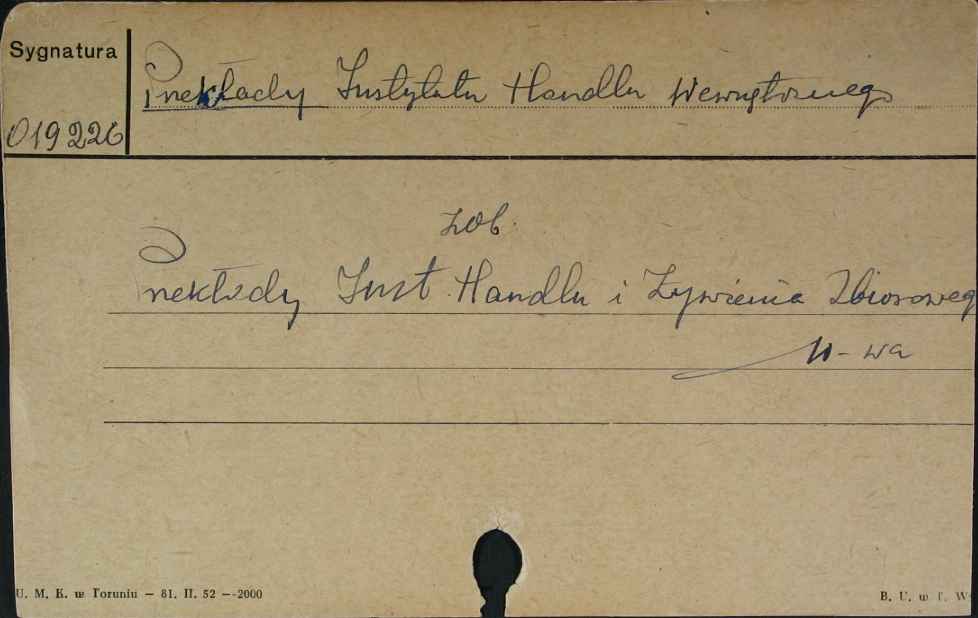 Sygnatura
Przekłady Instytutu Handlu Wewnętrznego
019226
zob.
Przekłady Inst. Handlu i Żywienia Zbiorowego
W-wa
U. M. K. w Toruniu — 81. II. 52 — 2000
B. U. w T. W